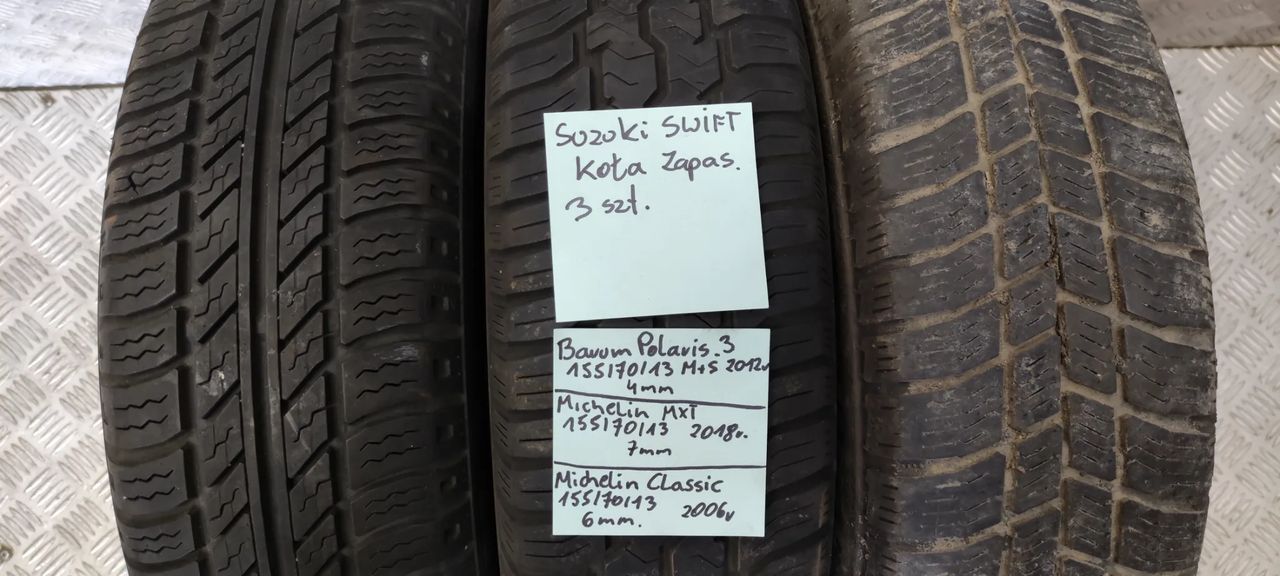 Suzuki SWIFT
Koła Zapas.
3 szt.
Barum Polaris.3
155/70/13 M+S 2012r
4mm
Michelin MXT
155/70/13 2018r.
7mm
Michelin Classic
155/70/13 2006r
6mm.